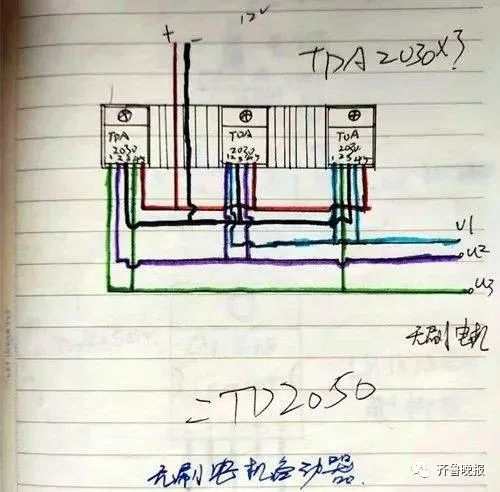 12V
+ -
TDA2030×3
TDA
2030
12345
TDA
2030
12345
TDA
2030
12345
U1
U2
U3
无刷电机
=TD2050
无刷电机启动器.
齐鲁晚报